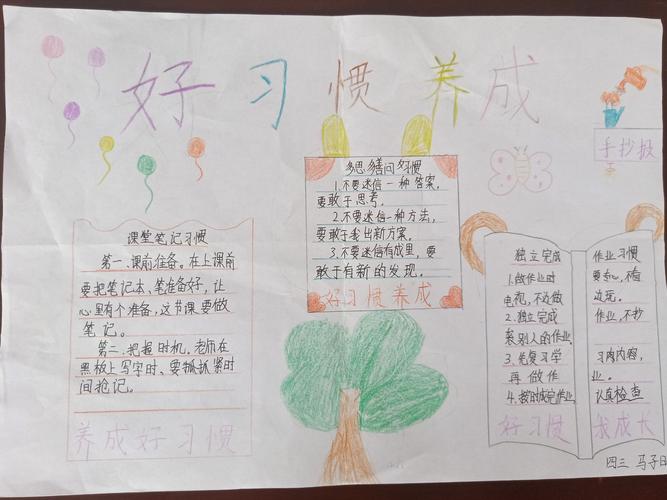 好习惯养成
手抄报
课堂笔记习惯
第一、课前准备。在上课前
要把笔记本、笔准备好，让
心里有个准备，这节课要做
笔记。
第二、把握时机。老师在
黑板上写字时、要抓紧时
间抢记。
养成好习惯
多思、善问习惯
1.不要迷信一种答案，
要敢于思考。
2.不要迷信一种方法，
要敢于找出新方案。
3.不要迷信有成里，要
敢于有新的发现。
好习惯养成
独立完成 作业习惯
1.做作业时 要专心，不看
电视，不边做 边玩。
2.独立完成 作业，不抄
袭别人的作业
3.先复习学 习内容，
再做作 业。
4.按时成完作业 认真检查
好习惯 我成长
四三 马子